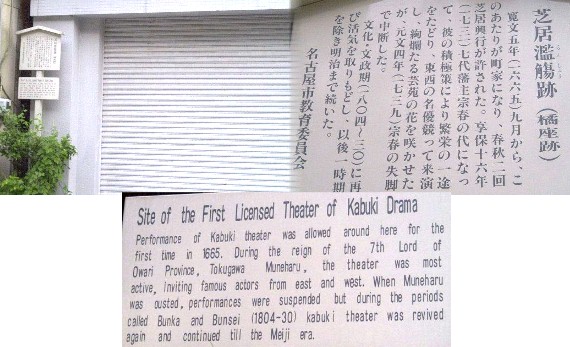 芝居濫觴跡（橘座跡）
寛文五年（一六六五）九月から、こ
のあたりが町家になり、春秋二回
芝居興行が許された。享保十六年
（一七三一）七代藩主宗春の代になっ
て、彼の積極策により繁栄の一途
をたどり、東西の名優競って来演
し、絢爛たる芸苑の花を咲かせた
が、元文四年（一七三九）宗春の失脚
で中断した。
文化・文政期（一八〇四〜三〇）に再
び活気を取りもどし、以後一時期
を除き明治まで続いた。
名古屋市教育委員会
Site of the First Licensed Theater of Kabuki Drama
Performance of Kabuki theater was allowed around here for the
first time in 1665. During the reign of the 7th Lord of
Owari Province, Tokugawa Muneharu, the theater was most
active, Inviting famous actors from east and west. When Muneharu
was ousted, performances were suspended but during the periods
called Bunka and Bunsei (1804-30) kabuki theater was revived
again and continued till the Meiji era.